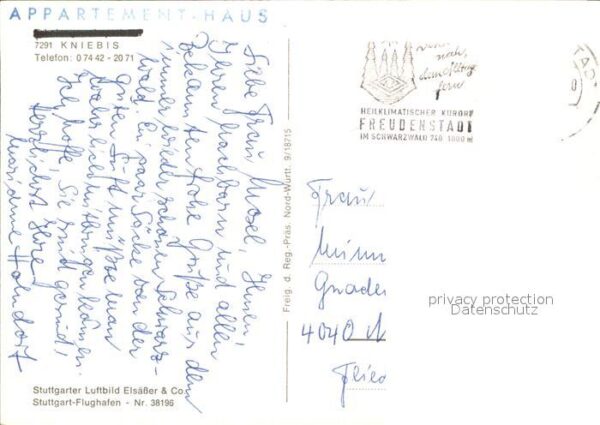 APPARTEMENT-HAUS
7291 KNIEBIS
Telefon: 0 74 42 - 20 71
Liebe Frau Mosel, Ihnen,
Ihren Nachbarn und allen
Bekannten frohe Grüße aus dem
immer wieder schönen Schwarz-
wald. Ein paar Säcke von der
guten Luft müßte man
mitbringen können.
Ich hoffe, Sie sind gesund,
herzlichst Ihre
Marianne
Freig. d. Reg.-Präs. Nord-Württ. 9/18715
Stuttgarter Luftbild Elsäßer & Co.
Stuttgart-Flughafen - Nr. 38196
nah,
fern
HEILKLIMATISCHER KURORT
FREUDENSTADT
IM SCHWARZWALD 740-1000 m
Frau
Gnaden
4040 N
privacy protection
Datenschutz